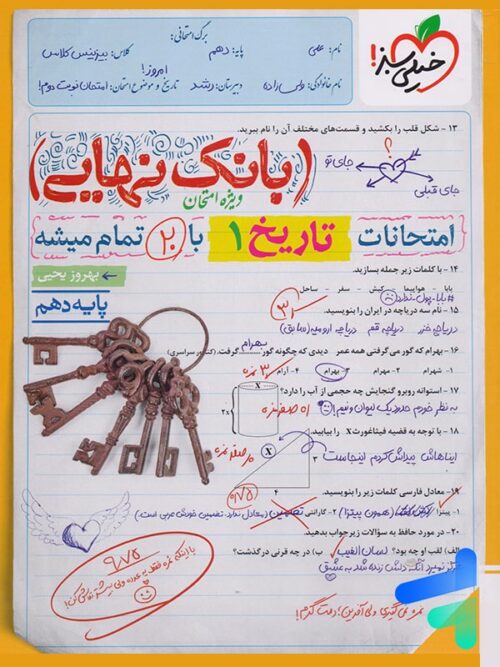 خیلی سبز!
برگ امتحانی:
نام: علی
پایه: دهم
کلاس: بیزینس کلاس
نام خانوادگی: ولی‌زاده
دبیرستان: رشد
تاریخ و موضوع امتحان: امروز! امتحان نوبت دوم!
۱۳ - شکل قلب را بکشید و قسمت‌های مختلف آن را نام ببرید.
؟
جای تو
جای قبلی
(بانک نهایی)
ویژه امتحان
امتحانات تاریخ ۱ با ۲۰ تمام میشه
۱۴ - با کلمات زیر جمله بسازید.
بهروز یحیی
بابا - هواپیما - کیش - سفر - ساحل
#بابا_پول_نداره
پایه دهم
۱۵ - نام سه دریاچه در ایران را بنویسید.
دریاچه خزر دریاچه قم دریاچه ارومیه (سابق)
۱۶ - بهرام که گور می‌گرفتی همه عمر دیدی که چگونه گور بهرام گرفت. (کنکور سراسری)
۱ - شهرام ۲ - مهرام ۳ - بهرام ۴ - آرام
۳ نمره
۱۷ - استوانه روبرو گنجایش چه حجمی از آب را دارد؟
X
2x
به نظر خودم حدود یک لیوان و نیم!
۱۸ - با توجه به قضیه فیثاغورث X را بیابید.
ایناهاش پیداش کردم اینجاست
X
۳
۴
۱۹ - معادل فارسی کلمات زیر را بنویسید.
۱ - پیتزا (همون پیتزا) ۲ - گارانتی تضمین (معادل ندارد. تضمین خودش عربی است.)
۲۰ - در مورد حافظ به سؤالات زیر جواب دهید.
الف) لقب او چه بود؟ لسان الغیب ب) در چه قرنی درگذشت؟
هرگز نمیرد آنکه دلش زنده شد به عشق
۹/۷۵